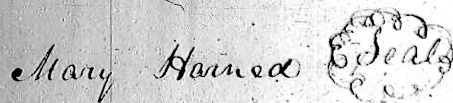 Mary Harned Seal